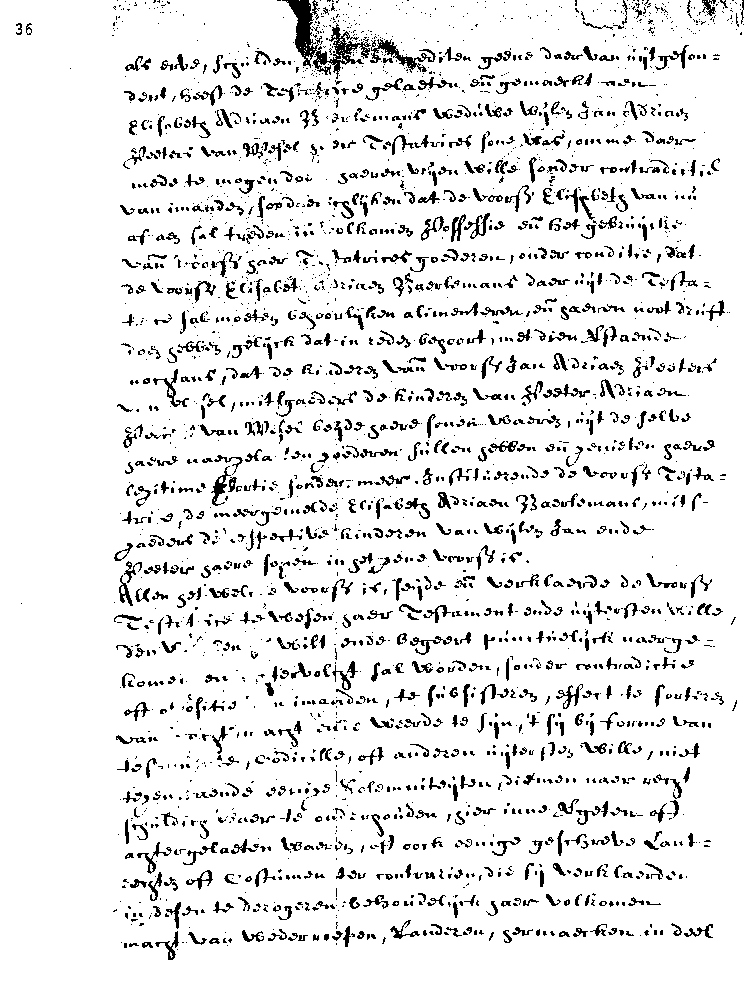 36
als erve, schulden, en crediten geene daer van uijtgeson=
dert, heeft de Testatrice gelaeten eñ gemaeckt aen
Elisabeth Adriaen Baerlemans weduwe wijlen Jan Adriaen
Peeters van Wesel haer Testatrices sone was, omme daer
mede te mogen doen haeren vrijen wille sonder contradictie
van imanden, sonder ingelijken dat de voors Elisabeth van nu
af aen sal treden in volkomen Possessie eñ het gebruijcke
van voors haer Testatrices goederen, onder conditie, dat
de voors Elisabeth Adriaen Baerlemans daer uijt de Testa=
trice sal moeten behoorlijken alimenteren, eñ haeren nootdruft
doen hebben, gelijck dat in reden behoort, met dien verstaende
nochtans, dat de kinderen van voors Jan Adriaen Peeters
van Wesel, mitsgaeders de kinderen van Peeter Adriaen
Peeters van Wesel beijde haere sonen waeren, uijt de selve
haere naergelaten goederen sullen hebben eñ genieten haere
legitime Portie sonder meer. Instituerende de voors Testa=
trice, de meergemelde Elisabeth Adriaen Baerlemans, mits=
gaeders de respective kinderen van wijlen Jan ende
Peeter haere sonen in hetgene voors is.
Allen het welcke voors is, seijde eñ verklaerde de voors
Testatrice te wesen haer Testament ende uijtersten wille,
den welcken sij wilt ende begeert punctuelijck naerge=
komen en achtervolght sal worden, sonder contradictie
oft oppositie van imanden, te subsisteren, effect te sorteren,
van cracht, macht ende weerde te sijn, 't sij bij forme van
testamente, Codicille, oft anderen uijtersten wille, niet
tegenstaende eenige solemniteijten, diemen naer recht
schuldich waer te onderhouden, hier inne vergeten oft
achtergelaeten waeren, oft oock eenige geschreve Lant=
rechten oft Costumen ter contrarien, die sij verklaerden
in desen te derogeren, behoudelijck haer volkomen
macht van wederroepen, veranderen, vermaecken in deel